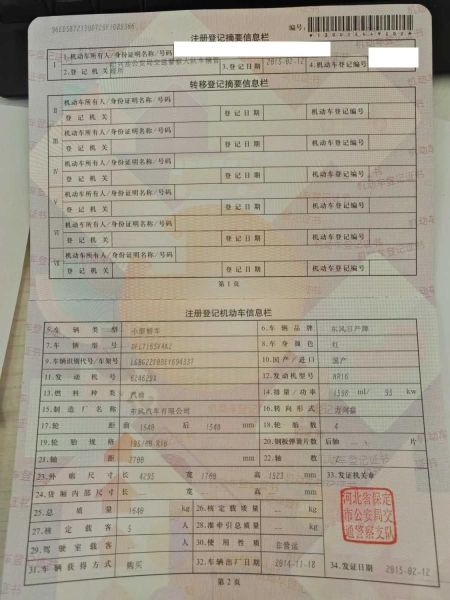 注册登记摘要信息栏
编号:
I
1.机动车所有人/身份证明名称/号码
2.登记机关
3.登记日期 2015-02-12
4.机动车登记编号
转移登记摘要信息栏
II 机动车所有人/身份证明名称/号码
登记机关 登记日期 机动车登记编号
III 机动车所有人/身份证明名称/号码
登记机关 登记日期 机动车登记编号
IV 机动车所有人/身份证明名称/号码
登记机关 登记日期 机动车登记编号
V 机动车所有人/身份证明名称/号码
登记机关 登记日期 机动车登记编号
VI 机动车所有人/身份证明名称/号码
登记机关 登记日期 机动车登记编号
VII 机动车所有人/身份证明名称/号码
登记机关 登记日期 机动车登记编号
第1页
注册登记机动车信息栏
5.车辆类型 小型轿车 6.车辆品牌 东风日产牌
7.车辆型号 8.车身颜色 红
9.车辆识别代号/车架号 10.国产/进口 国产
11.发动机号 12.发动机型号 HR16
13.燃料种类 汽油 14.排量/功率 1598 ml/ 93 kw
15.制造厂名称 东风汽车有限公司 16.转向形式 方向盘
17.轮距 前 1540 后 1540 mm 18.轮胎数 4
19.轮胎规格 20.钢板弹簧片数 后轴
21.轴距 2700 mm 22.轴数 2
23.外廓尺寸 长 4295 宽 1760 高 1523 mm 33.发证机关章
24.货厢内部尺寸 长 宽 高 mm
25.总质量 1640 kg 26.核定载质量 kg
27.核定载客 5 人 28.准牵引总质量 kg
29.驾驶室载客 人 30.使用性质 非营运
31.车辆获得方式 购买 32.车辆出厂日期 2014-11-18 34.发证日期 2015-02-12
河北省保定
市公安局交
通警察支队
第2页